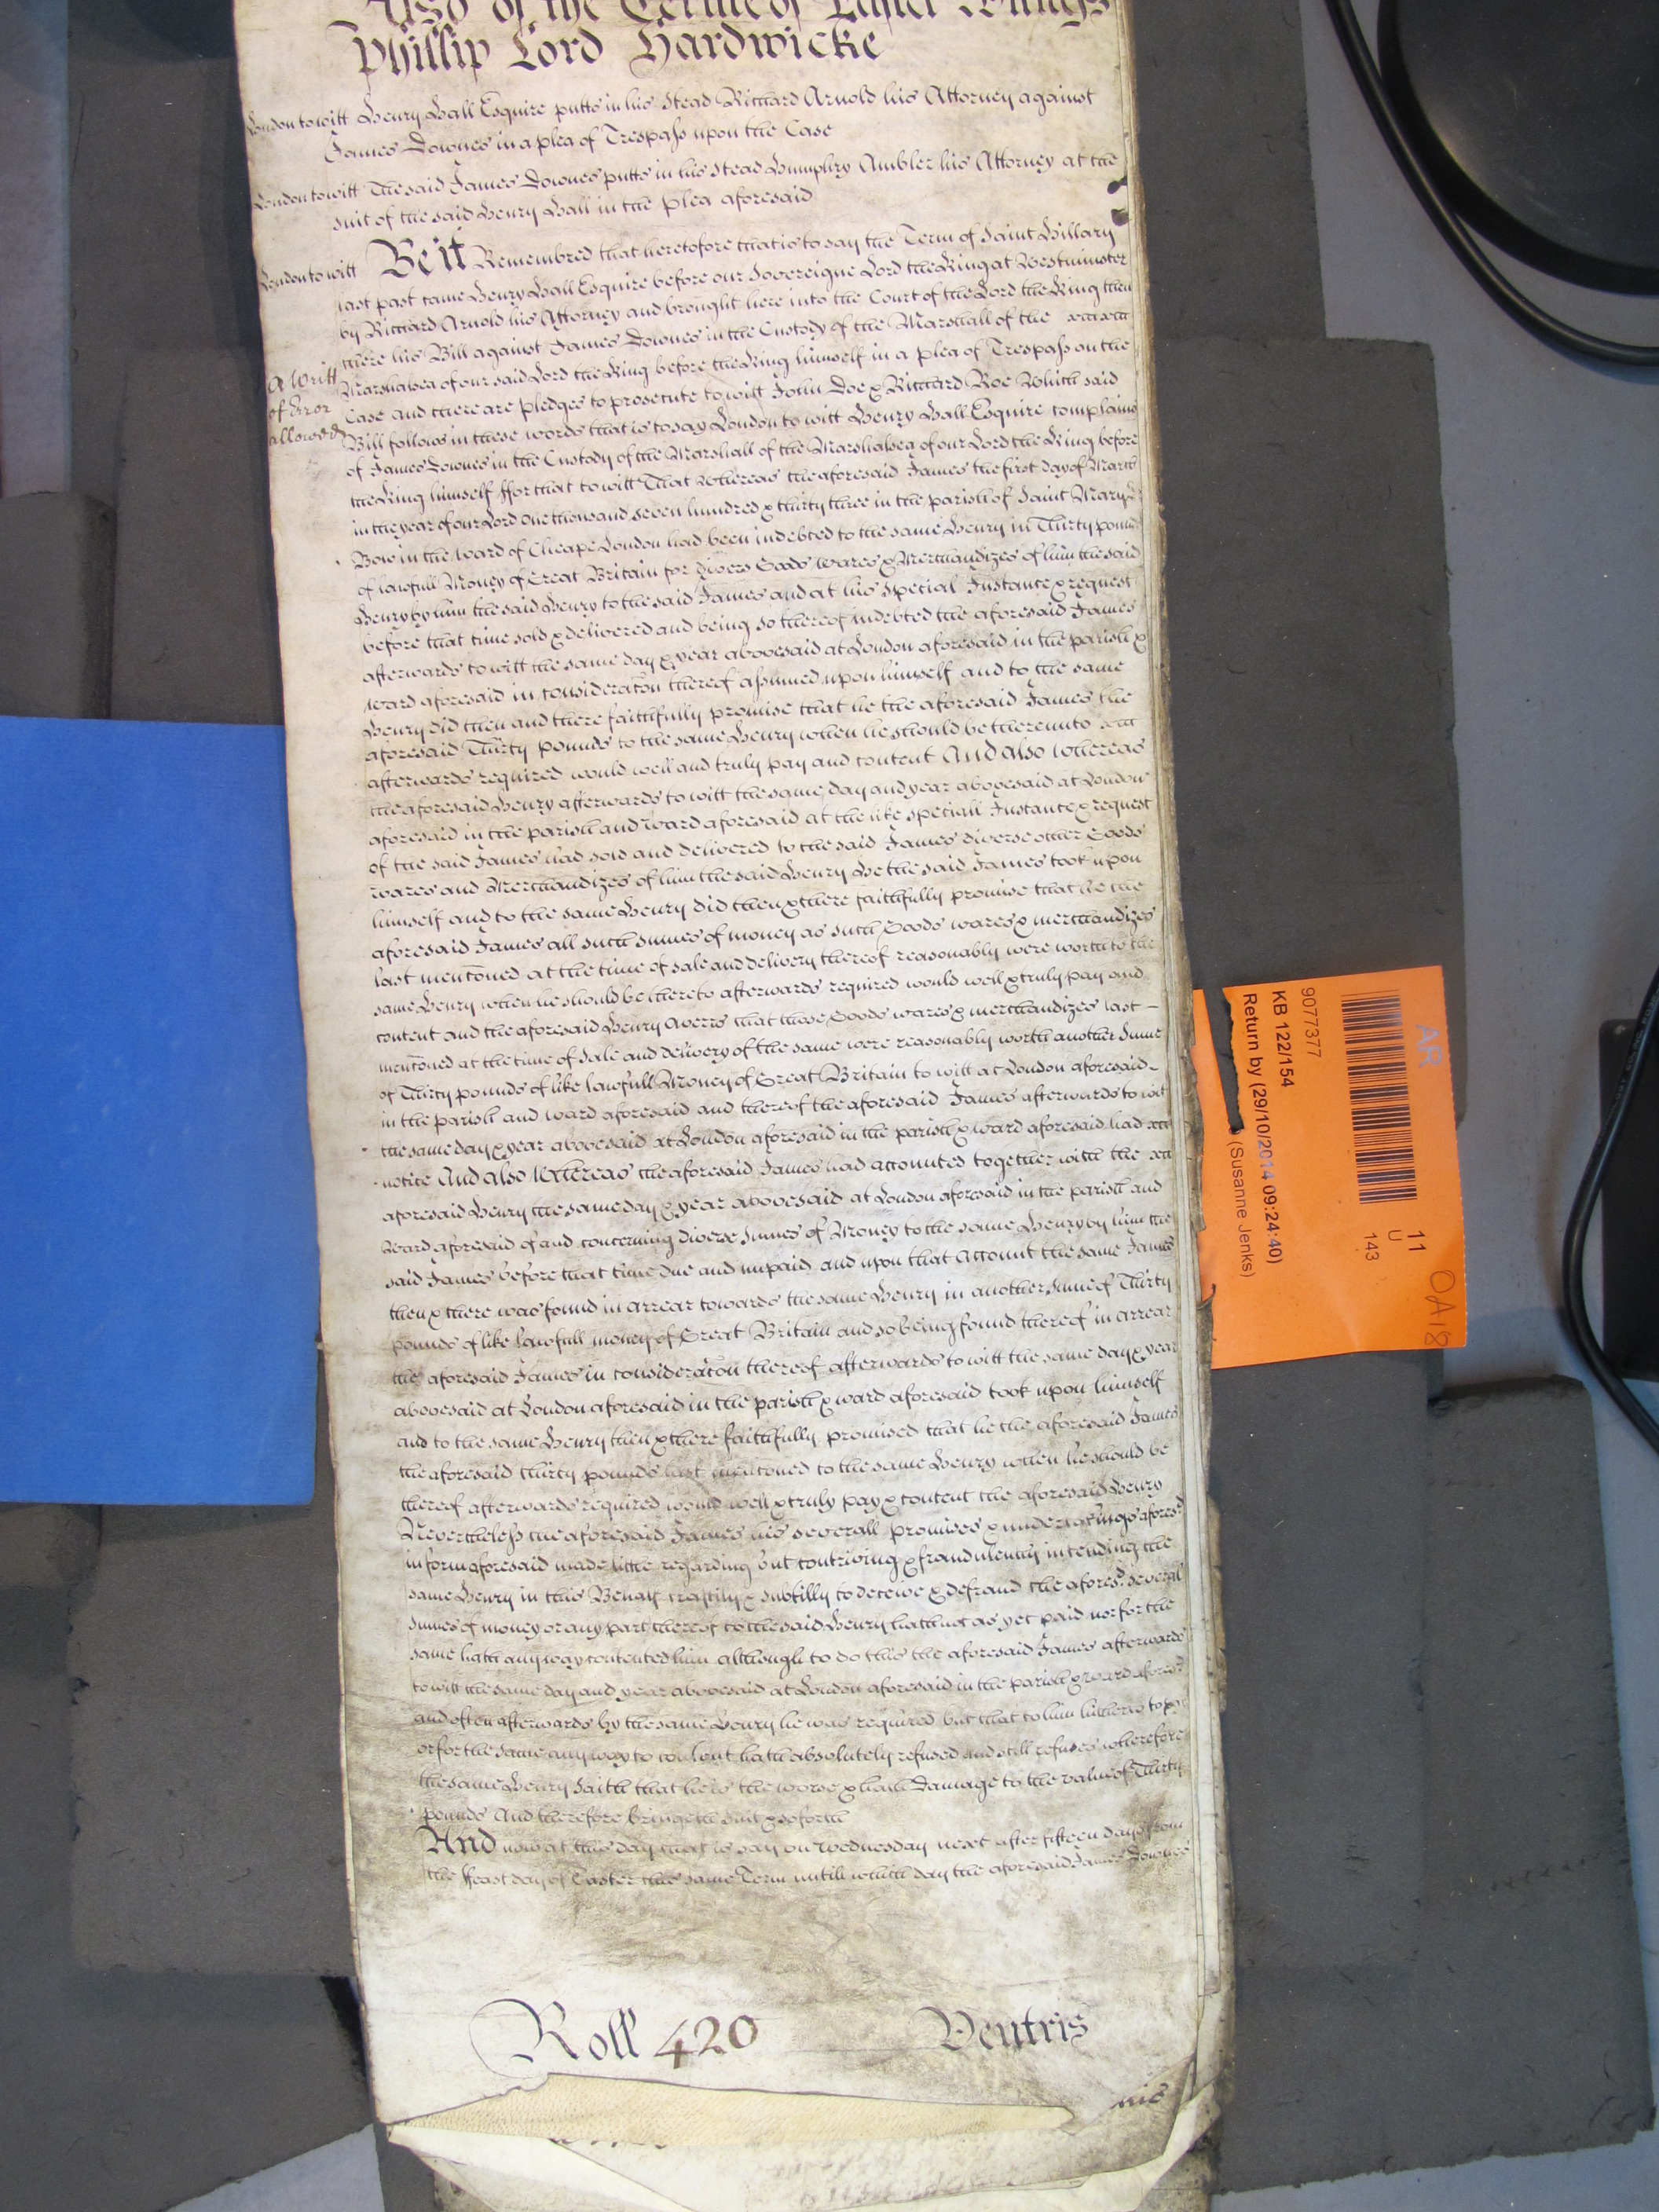 Also of the Terme of Easter
Phillip Lord Hardwicke
London to witt Henry Hall Esquire putts in his Stead Richard Arnold his Attorney against
James Downes in a plea of Trespass upon the Case
London to witt The said James Downes putts in his Stead Humphry Ambler his Attorney at the
suit of the said Henry Hall in the plea aforesaid
London to witt Be it Remembred that heretofore that is to say the Term of Saint Hillary
last past came Henry Hall Esquire before our Sovereigne Lord the King at Westminster
by Richard Arnold his Attorney and brought here into the Court of the Lord the King then
there his Bill against James Downes in the Custody of the Marshall of the
A Writt
of Error
allowed
Marshalsea of our said Lord the King before the King himself in a plea of Trespass on the
Case and there are pledges to prosecute to witt John Doe & Richard Roe Which said
Bill follows in these words that is to say London to witt Henry Hall Esquire complains
of James Downes in the Custody of the Marshall of the Marshalsea of our Lord the King before
the King himself ffor that to witt That Whereas the aforesaid James the first day of March
in the year of our Lord One thousand seven hundred & thirty three in the parish of Saint Mary Le
Bow in the ward of Cheape London had been indebted to the same Henry in Thirty pounds
of lawfull Money of Great Britain for Divers Goods Wares & Merchandizes of him the said
Henry by him the said Henry to the said James and at his Special Instance & request
before that time sold & delivered and being so thereof indebted the aforesaid James
afterwards to witt the same day & year abovesaid at London aforesaid in the parish &
ward aforesaid in consideracon thereof assumed upon himself and to the same
Henry did then and there faithfully promise that he the aforesaid James the
aforesaid Thirty pounds to the same Henry when he should be thereunto
afterwards required would well and truly pay and content And also Whereas
the aforesaid Henry afterwards to witt the same day and year abovesaid at London
aforesaid in the parish and Ward aforesaid at the like speciall Instance & request
of the said James had sold and delivered to the said James diverse other Goods
wares and Merchandizes of him the said Henry He the said James took upon
himself and to the same Henry did then & there faithfully promise that he the
aforesaid James all such summes of money as such Goods wares & merchandizes
last mentoned at the time of sale and delivery thereof reasonably were worth to the
same Henry when he should be thereto afterwards required would well & truly pay and
content and the aforesaid Henry Averrs that those Goods wares & merchandizes last -
mentoned at the time of Sale and delivery of the same were reasonably worth another Sume
of Thirty pounds of like lawfull Money of Great Britain to witt at London aforesaid -
in the parish and ward aforesaid and thereof the aforesaid James afterwards to wit
the same day & year abovesaid at London aforesaid in the parish & ward aforesaid had
notice And also Whereas the aforesaid James had accounted together with the
aforesaid Henry the same day & year abovesaid at London aforesaid in the parish and
Ward aforesaid of and concerning diverse Sumes of Money to the same Henry by him the
said James before that time due and unpaid and upon that Account the same James
then & there was found in arrear towards the same Henry in another Sume of Thirty
pounds of like lawfull money of Great Britain and so being found thereof in arrear
the aforesaid James in consideracon thereof afterwards to witt the same day & year
abovesaid at London aforesaid in the parish & ward aforesaid took upon himself
and to the same Henry then & there faithfully promised that he the aforesaid James
the aforesaid thirty pounds last mentoned to the same Henry when he should be
thereof afterwards required would well & truly pay & content the aforesaid Henry
Nevertheless the aforesaid James his severall promises & undertakings afores.d
in form aforesaid made little regarding but contriving & fraudulently intending the
same Henry in this Behalf craftily & subtilly to deceive & defraud the afores.d several
Sumes of money or any part thereof to the said Henry hath not as yet paid nor for the
same hath any way contented him although to do this the aforesaid James afterwards
to witt the same day and year abovesaid at London aforesaid in the parish & ward afores.d
and often afterwards by the same Henry he was required but that to him hitherto to pay
or for the same any way to content hath absolutely refused and still refuses wherefore
the same Henry Saith that he is the worse & hath Damage to the value of Thirty
pounds And therefore bringeth suit & so forth
And now at this day that is say on Wednesday next after fifteen days from
the ffeast day of Easter this same Term untill which day the aforesaid James Downes
Roll 420 Ventris
AR
9077377
KB 122/154
Return by (29/10/2014 09:24:40)
(Susanne Jenks)
11
U
143
OA18